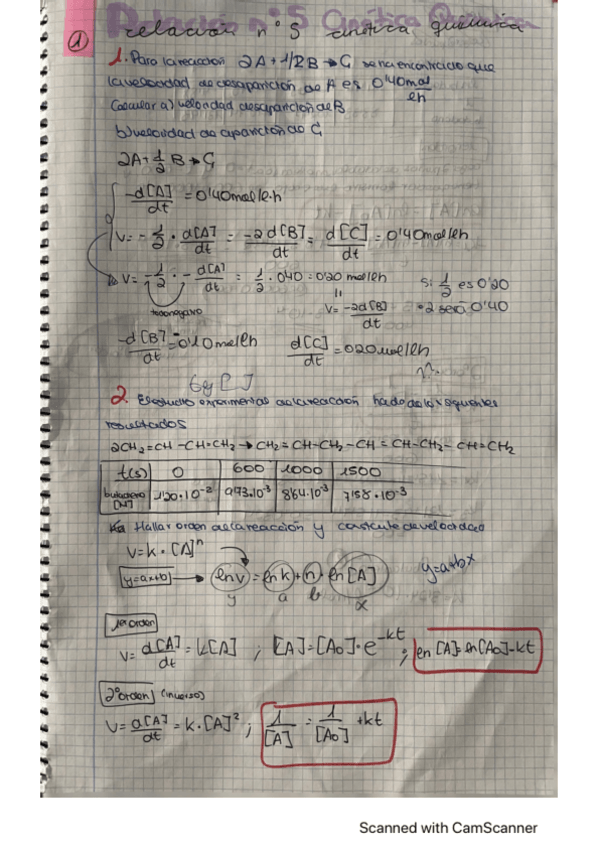 Relación nº5 Cinética Química
relación nº 5 cinética química
1
1. Para la reacción 2A + 1/2 B → C se ha encontrado que
la velocidad de desaparición de A es 0'40 mol/lh
Calcular a) velocidad desaparición de B
b) velocidad de aparición de C
2A + 1/2 B → C
-d[A]/dt = 0'40 mol/l·h
V = -1/2 · d[A]/dt = -2d[B]/dt = d[C]/dt = 0'40 mol/lh
V = -1/2 · -d[A]/dt = 1/2 · 0'40 = 0'20 mol/lh Si 1/2 es 0'20
V = -2d[B]/dt ·2 será 0'40
-d[B]/dt = 0'10 mol/lh d[C]/dt = 0'20 mol/lh
??
2. El estudio experimental de la reacción ha dado los siguientes
resultados
2CH2=CH-CH=CH2 → CH2=CH-CH2-CH=CH-CH2-CH=CH2
t(s) 0 600 1000 1500
butadieno [M] 1'20·10-2 9'73·10-3 8'64·10-3 7'58·10-3
Hallar orden de la reacción y constante de velocidad
V = k·[A]n
y=ax+b → ln v = ln k + n · ln [A] y=a+bx
y a b x
1er orden
V = d[A]/dt = k[A] ; [A]=[A0]·e-kt ; ln[A]=ln[A0]-kt
2º orden (inverso)
V = d[A]/dt = k·[A]2 ; 1/[A] = 1/[A0] + kt
Scanned with CamScanner